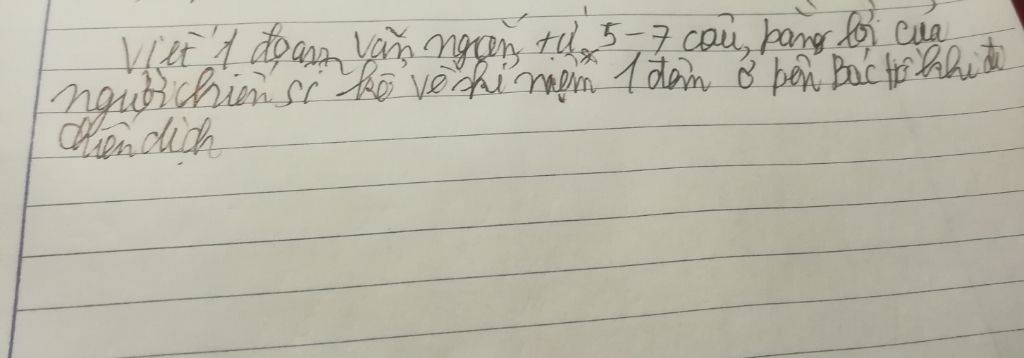 Viết 1 đoạn văn ngắn từ 5-7 câu, bằng lời của
người chiến sĩ kể về kỉ niệm 1 đêm ở bên Bác Hồ khi đi
chiến dịch